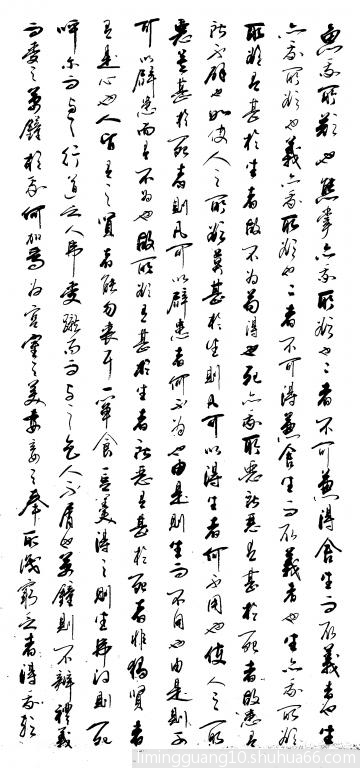 魚我所欲也熊掌亦我所欲也二者不可兼得舍生而取義者也生
亦我所欲也義亦我所欲也二者不可得兼舍生而取義者也生亦我所欲
所欲有甚於生者故不為苟得也死亦我所惡所惡有甚於死者故患有
所不辟也如使人之所欲莫甚於生則凡可以得生者何不用也使人之所
惡莫甚於死者則凡可以辟患者何不為也由是則生而不用也由是則
可以辟患而有不為也故所欲有甚於生者所惡有甚於死者非獨賢者
有是心也人皆有之賢者能勿喪耳一簞食一豆羹得之則生弗得則死
呼尔而与之行道之人弗受蹴而与之乞人不屑也萬鐘則不辨禮義
而受之萬鐘於我何加焉為宮室之美妻妾之奉所識窮乏者得我歟
limingguang10.shuhua66.com